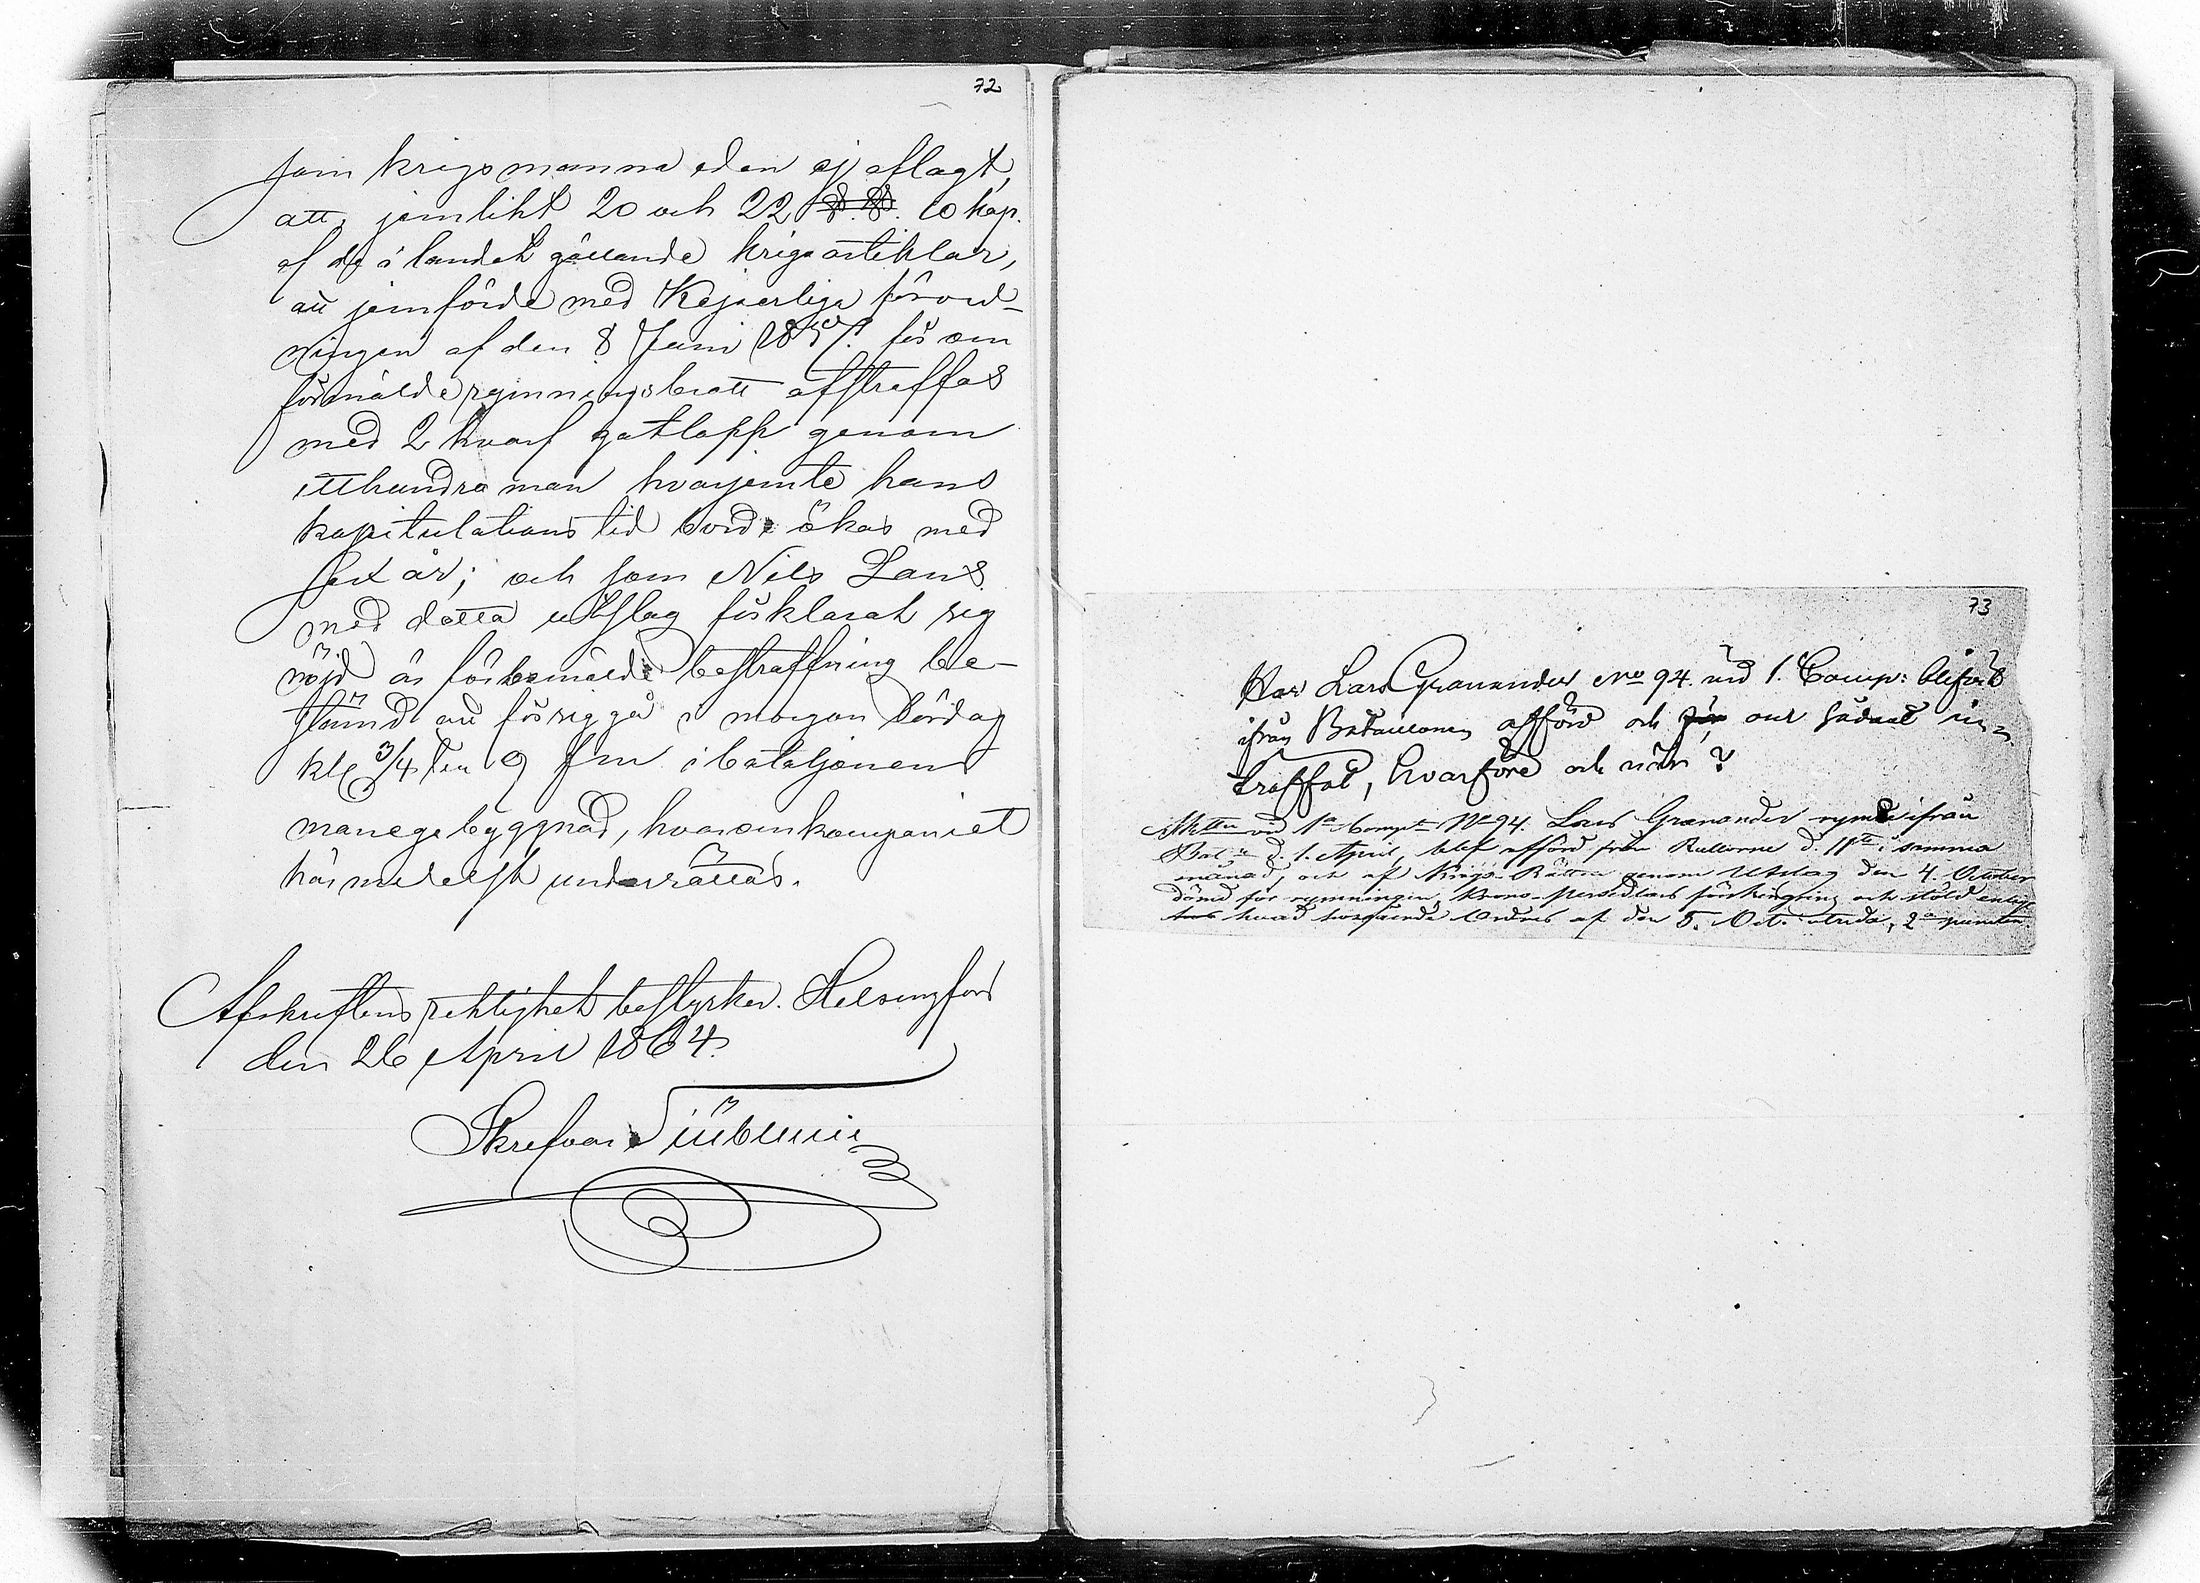 72
som krigsmanna eden ej aflagt,
att, jemlikt 20 och 22 §. §. 10 kap.
af de i landet gällande krigsartiklar,
att jemförde med Kejserliga förord-
ningen af den 8 Juni 1857. för om
förmälde rymningsbrott afstraffas
med 2 hvarf gatlopp genom
etthundra man hvarjemte hans
kapitulationstid borde ökas med
sex år; och som Nils Lans
med detta utslag förklarat sig
nöjd är förbemälde bestraffning be-
stämd att försiggå i morgon Lördag
kl. 3/4 till 9 fm i bataljonens
manegebyggnad, hvarom kompaniet
härmedelst underrättas.
Afskriftens riktighet bestyrker. Helsingfors
den 26 April 1864.
Skrefvare
73
Har Lars Granander No 94. vid 1. Comp: blifvit
ifrån Bataillonen afförd och om sådant in-
träffat, hvarföre och når?
vid 1a Compt No 94. Lars Granander rymde ifrån
Bat:n d. 1. April, blef afförd från Rullorne d. 11te i samma
månad, och af Krigs-Rätten genom Utslag den 4. October
dömd för rymningen, Krono-persedlars förskingring och stöld enligt
hvad Ordres af den 5. Oct. utreda, 2a punkten.